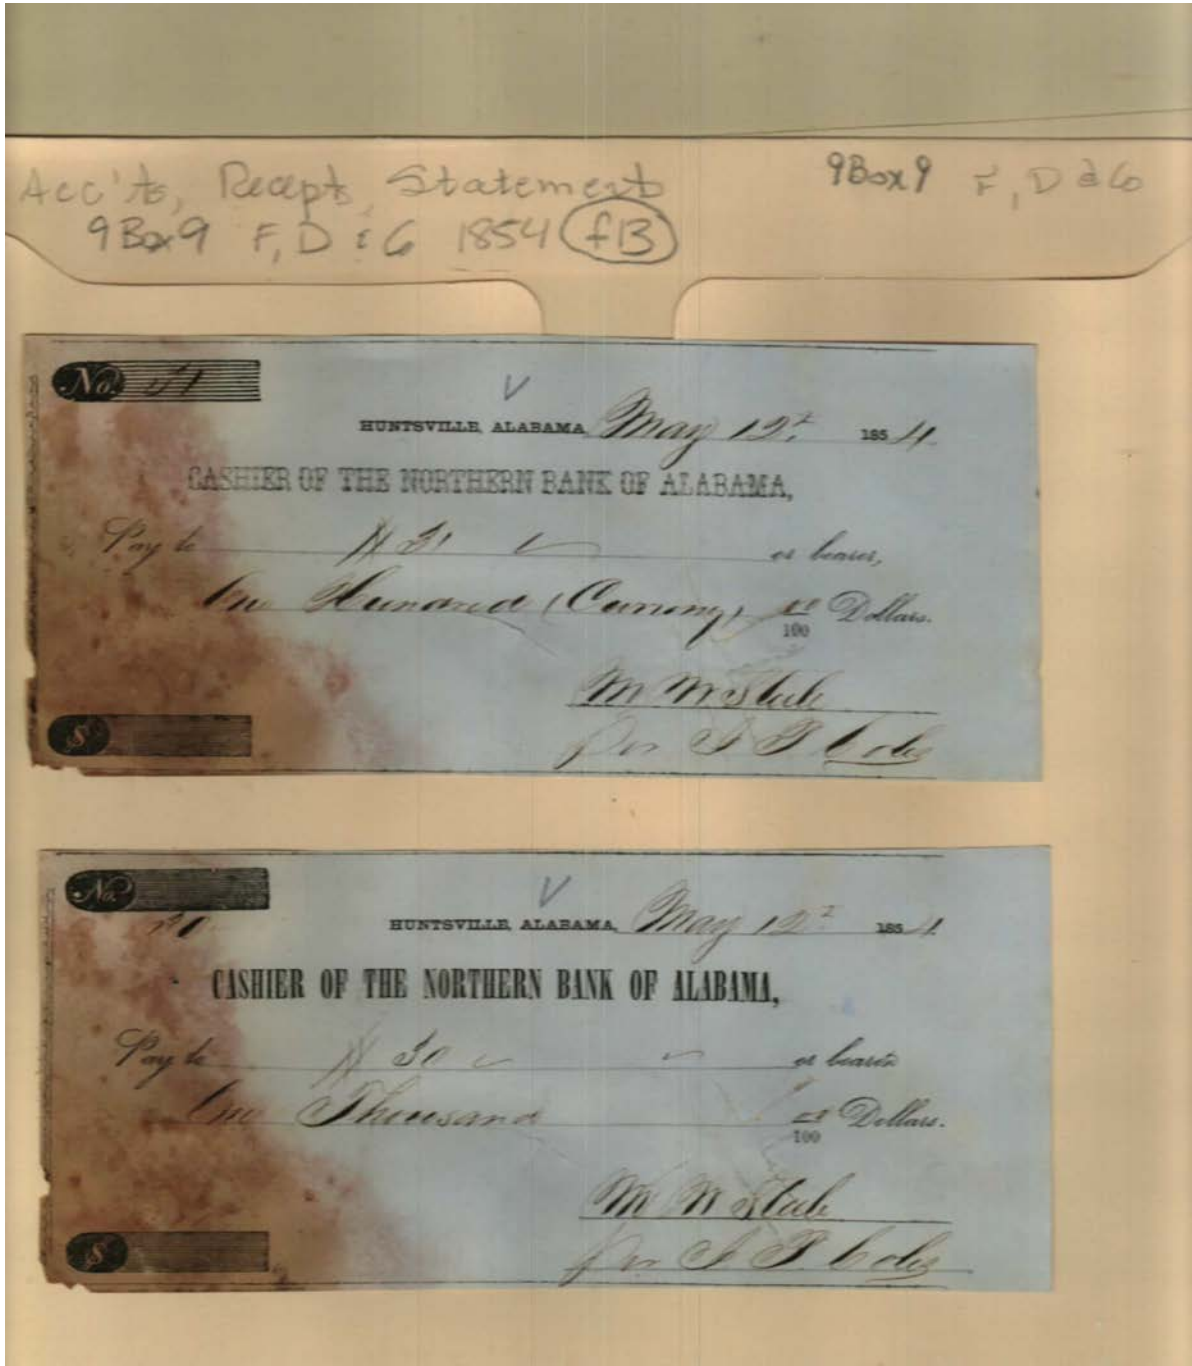 Acc'ts, Recepts, Statements
9Box9 F, D & Co 1854 f13
9Box9 F, D & Co
No. 31
HUNTSVILLE, ALABAMA, May 12th 1854
CASHIER OF THE NORTHERN BANK OF ALABAMA,
Pay to # 31 or bearer,
One Hundred (Currency) 00/100 Dollars.
M W Steele
per
$
No.
30
HUNTSVILLE, ALABAMA, May 12th 1854
CASHIER OF THE NORTHERN BANK OF ALABAMA,
Pay to # 30 or bearer
One Thousand 00/100 Dollars.
M W Steele
per
$